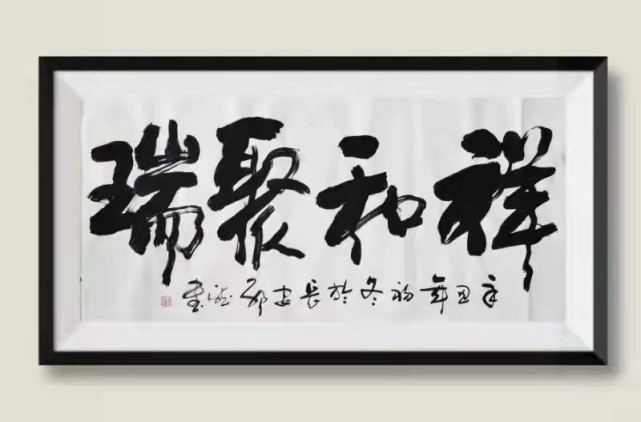 祥和聚瑞
辛丑年初冬於長安書